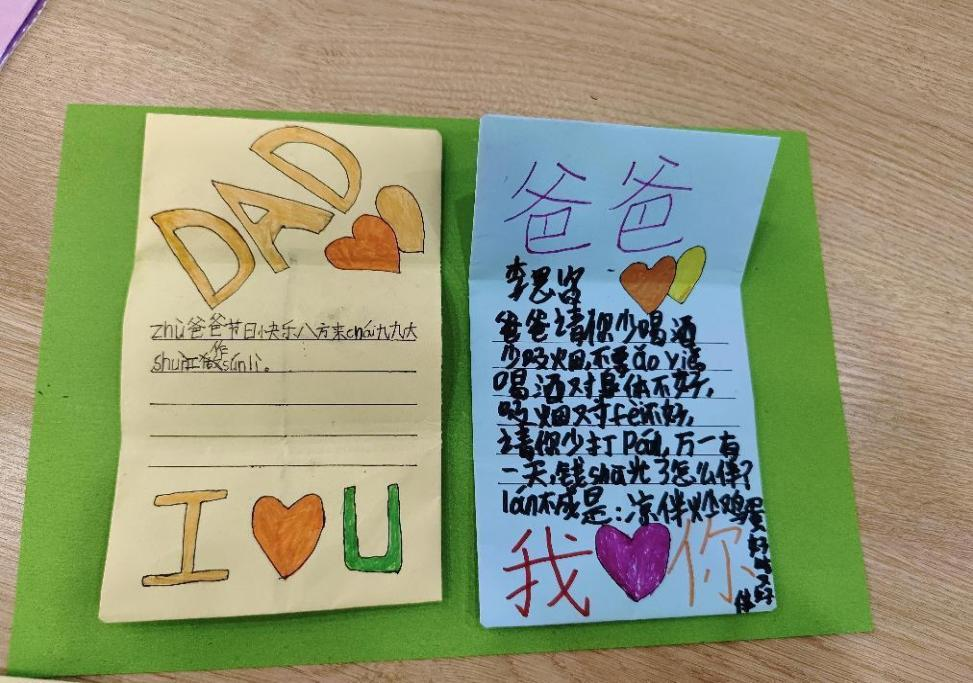 DAD
zhù爸爸节日快乐八方来cái九九大
shùn工作sùnlì。
I U
爸爸
李思
爸爸请你少喝酒
少吸烟,不要áo yè
喝酒对身体不好,
吸烟对fèi不好,
请你少打Pái,万一有
一天,钱shū光了怎么伴?
lán不成是:凉伴炒鸡蛋
好吃又好
伴
我 你